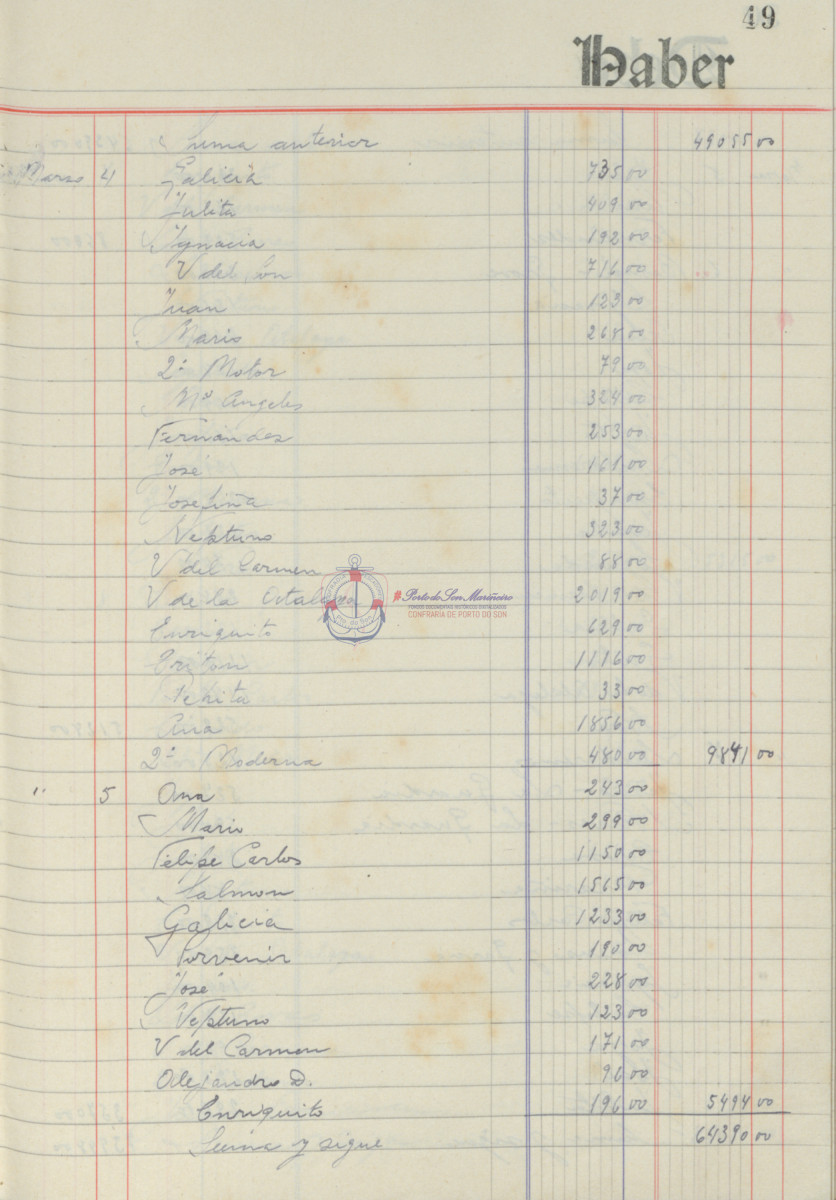 49
Haber
Suma anterior 49055 00
Marzo 4 Galicia 735 00
Julita 409 00
Ygnacia 192 00
V del 716 00
Juan 123 00
Mario 268 00
2ª Motor 79 00
Mª Angeles 324 00
Fernandez 253 00
José 161 00
Josefiña 37 00
Neptuno 323 00
V del Carmen 88 00
V de la 2019 00
Enriquito 629 00
1116 00
Pepita 33 00
Ana 1856 00
2ª Moderna 480 00 9841 00
" 5 Ana 243 00
Mario 299 00
Felipe Carlos 1150 00
Salmon 1565 00
Galicia 1233 00
Porvenir 190 00
José 228 00
Neptuno 123 00
V del Carmen 171 00
Alejandro D. 96 00
Enriquito 196 00 5494 00
Suma y sigue 64390 00
#Porto do Son Mariñeiro
FONDO DOCUMENTAIS HISTÓRICOS DIXITALIZADOS
CONFRARÍA DE PORTO DO SON